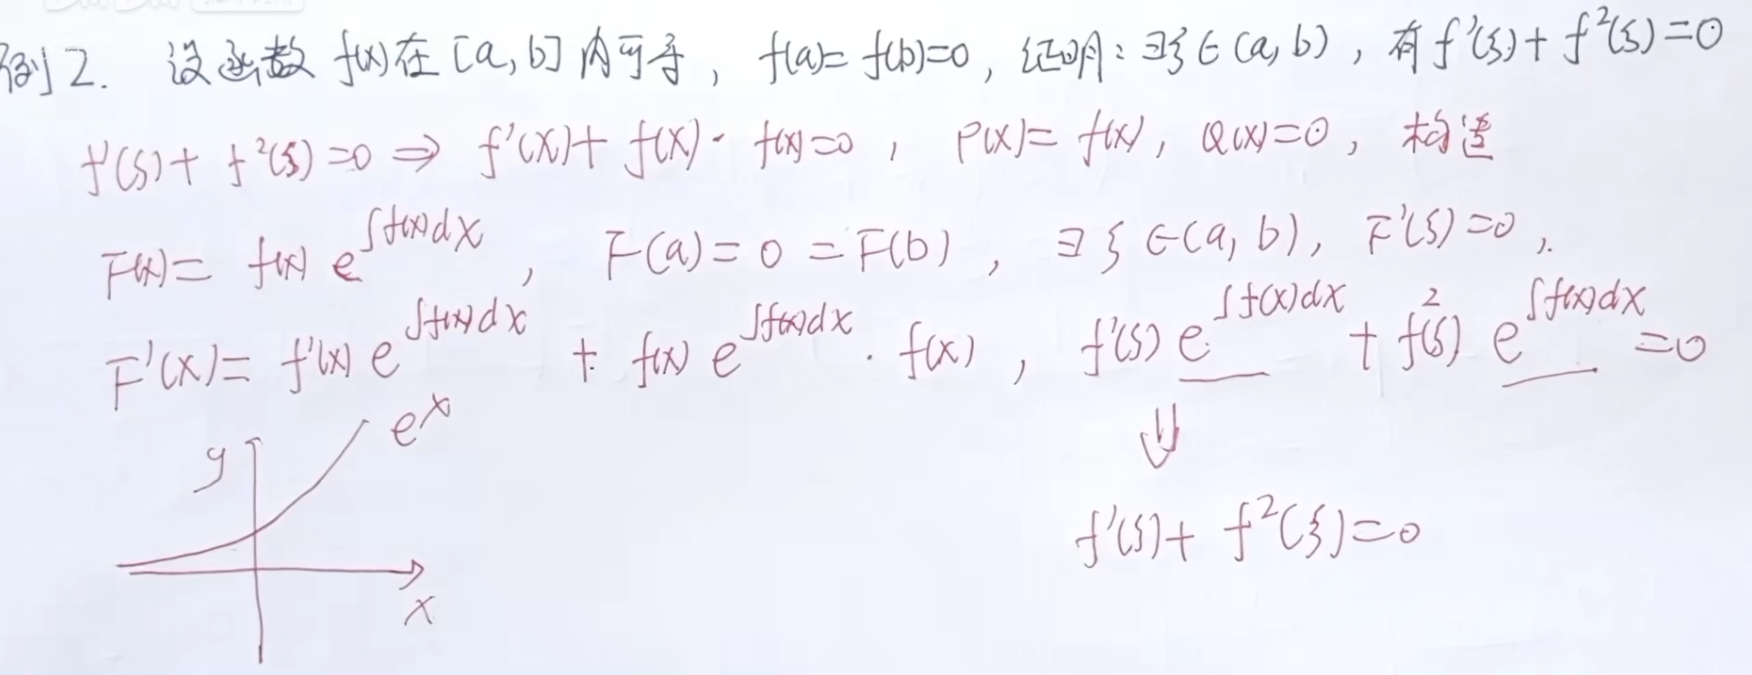 例2. 设函数 f(x)在[a,b]内可导, f(a)=f(b)=0, 证明:∃ξ∈(a,b), 有f'(ξ)+f²(ξ)=0
f'(ξ)+f²(ξ)=0⇒f'(x)+f(x)·f(x)=0, P(x)=f(x), Q(x)=0, 构造
F(x)=f(x)e^∫f(x)dx, F(a)=0=F(b), ∃ξ∈(a,b), F'(ξ)=0,
F'(x)=f'(x)e^∫f(x)dx+f(x)e^∫f(x)dx·f(x), f'(ξ)e^∫f(x)dx+f²(ξ)e^∫f(x)dx=0
⇓
y e^x
f'(ξ)+f²(ξ)=0
x